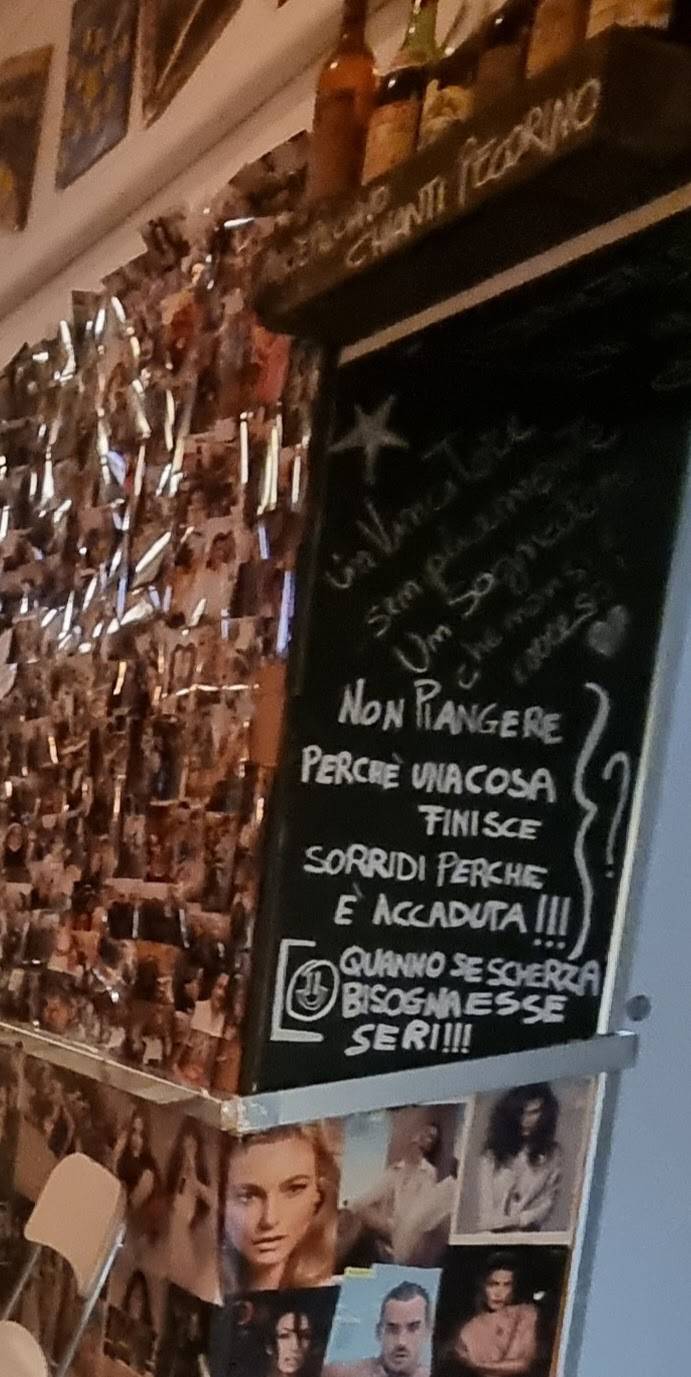 CHIANTI PECORINO
Un Vincitore
semplicemente
Un Sognatore
che non si è
NON PIANGERE
PERCHÈ UNA COSA
FINISCE
SORRIDI PERCHE
E' ACCADUTA!!!
?
QUANNO SE SCHERZA
BISOGNA ESSE
SERI!!!